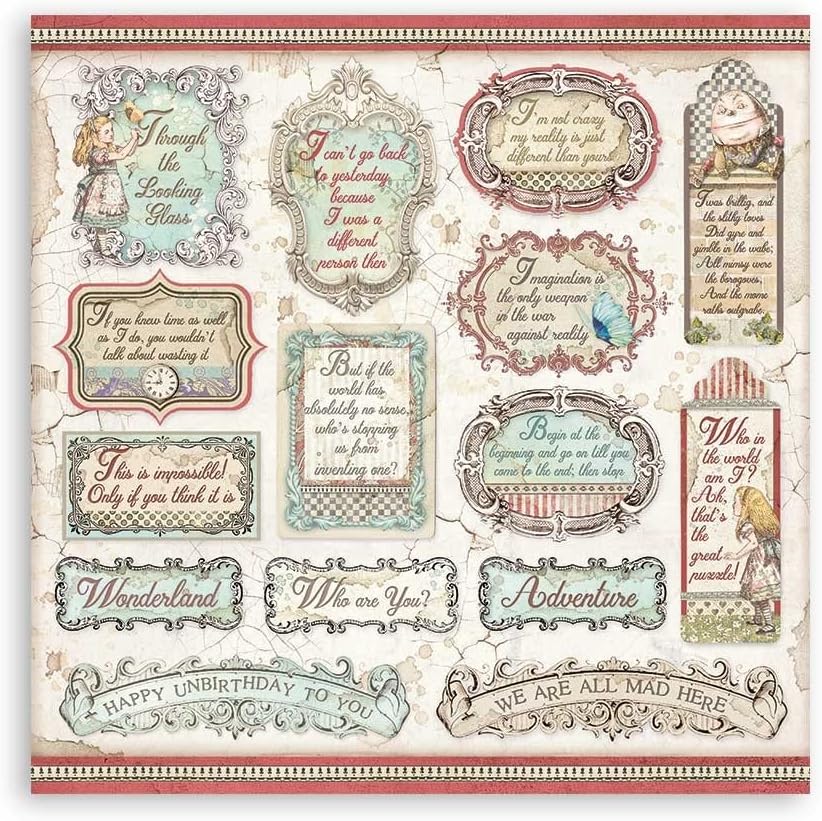 Through
the
Looking
Glass
I
can't go back
to yesterday
because
I was a
different
person then
I'm not crazy
my reality is just
different than yours
Twas brillig, and
the slithy toves
Did gyre and
gimble in the wabe;
All mimsy were
the borogoves,
And the mome
raths outgrabe.
If you knew time as well
as I do, you wouldn't
talk about wasting it
But if the
world has
absolutely no sense,
who's stopping
us from
inventing one?
Imagination is
the only weapon
in the war
against reality
Begin at the
beginning and go on till you
come to the end; then stop
Who in
the world
am I?
Ah,
that's
the
great
puzzle!
This is impossible!
Only if you think it is
Wonderland
Who are You?
Adventure
HAPPY UNBIRTHDAY TO YOU
WE ARE ALL MAD HERE